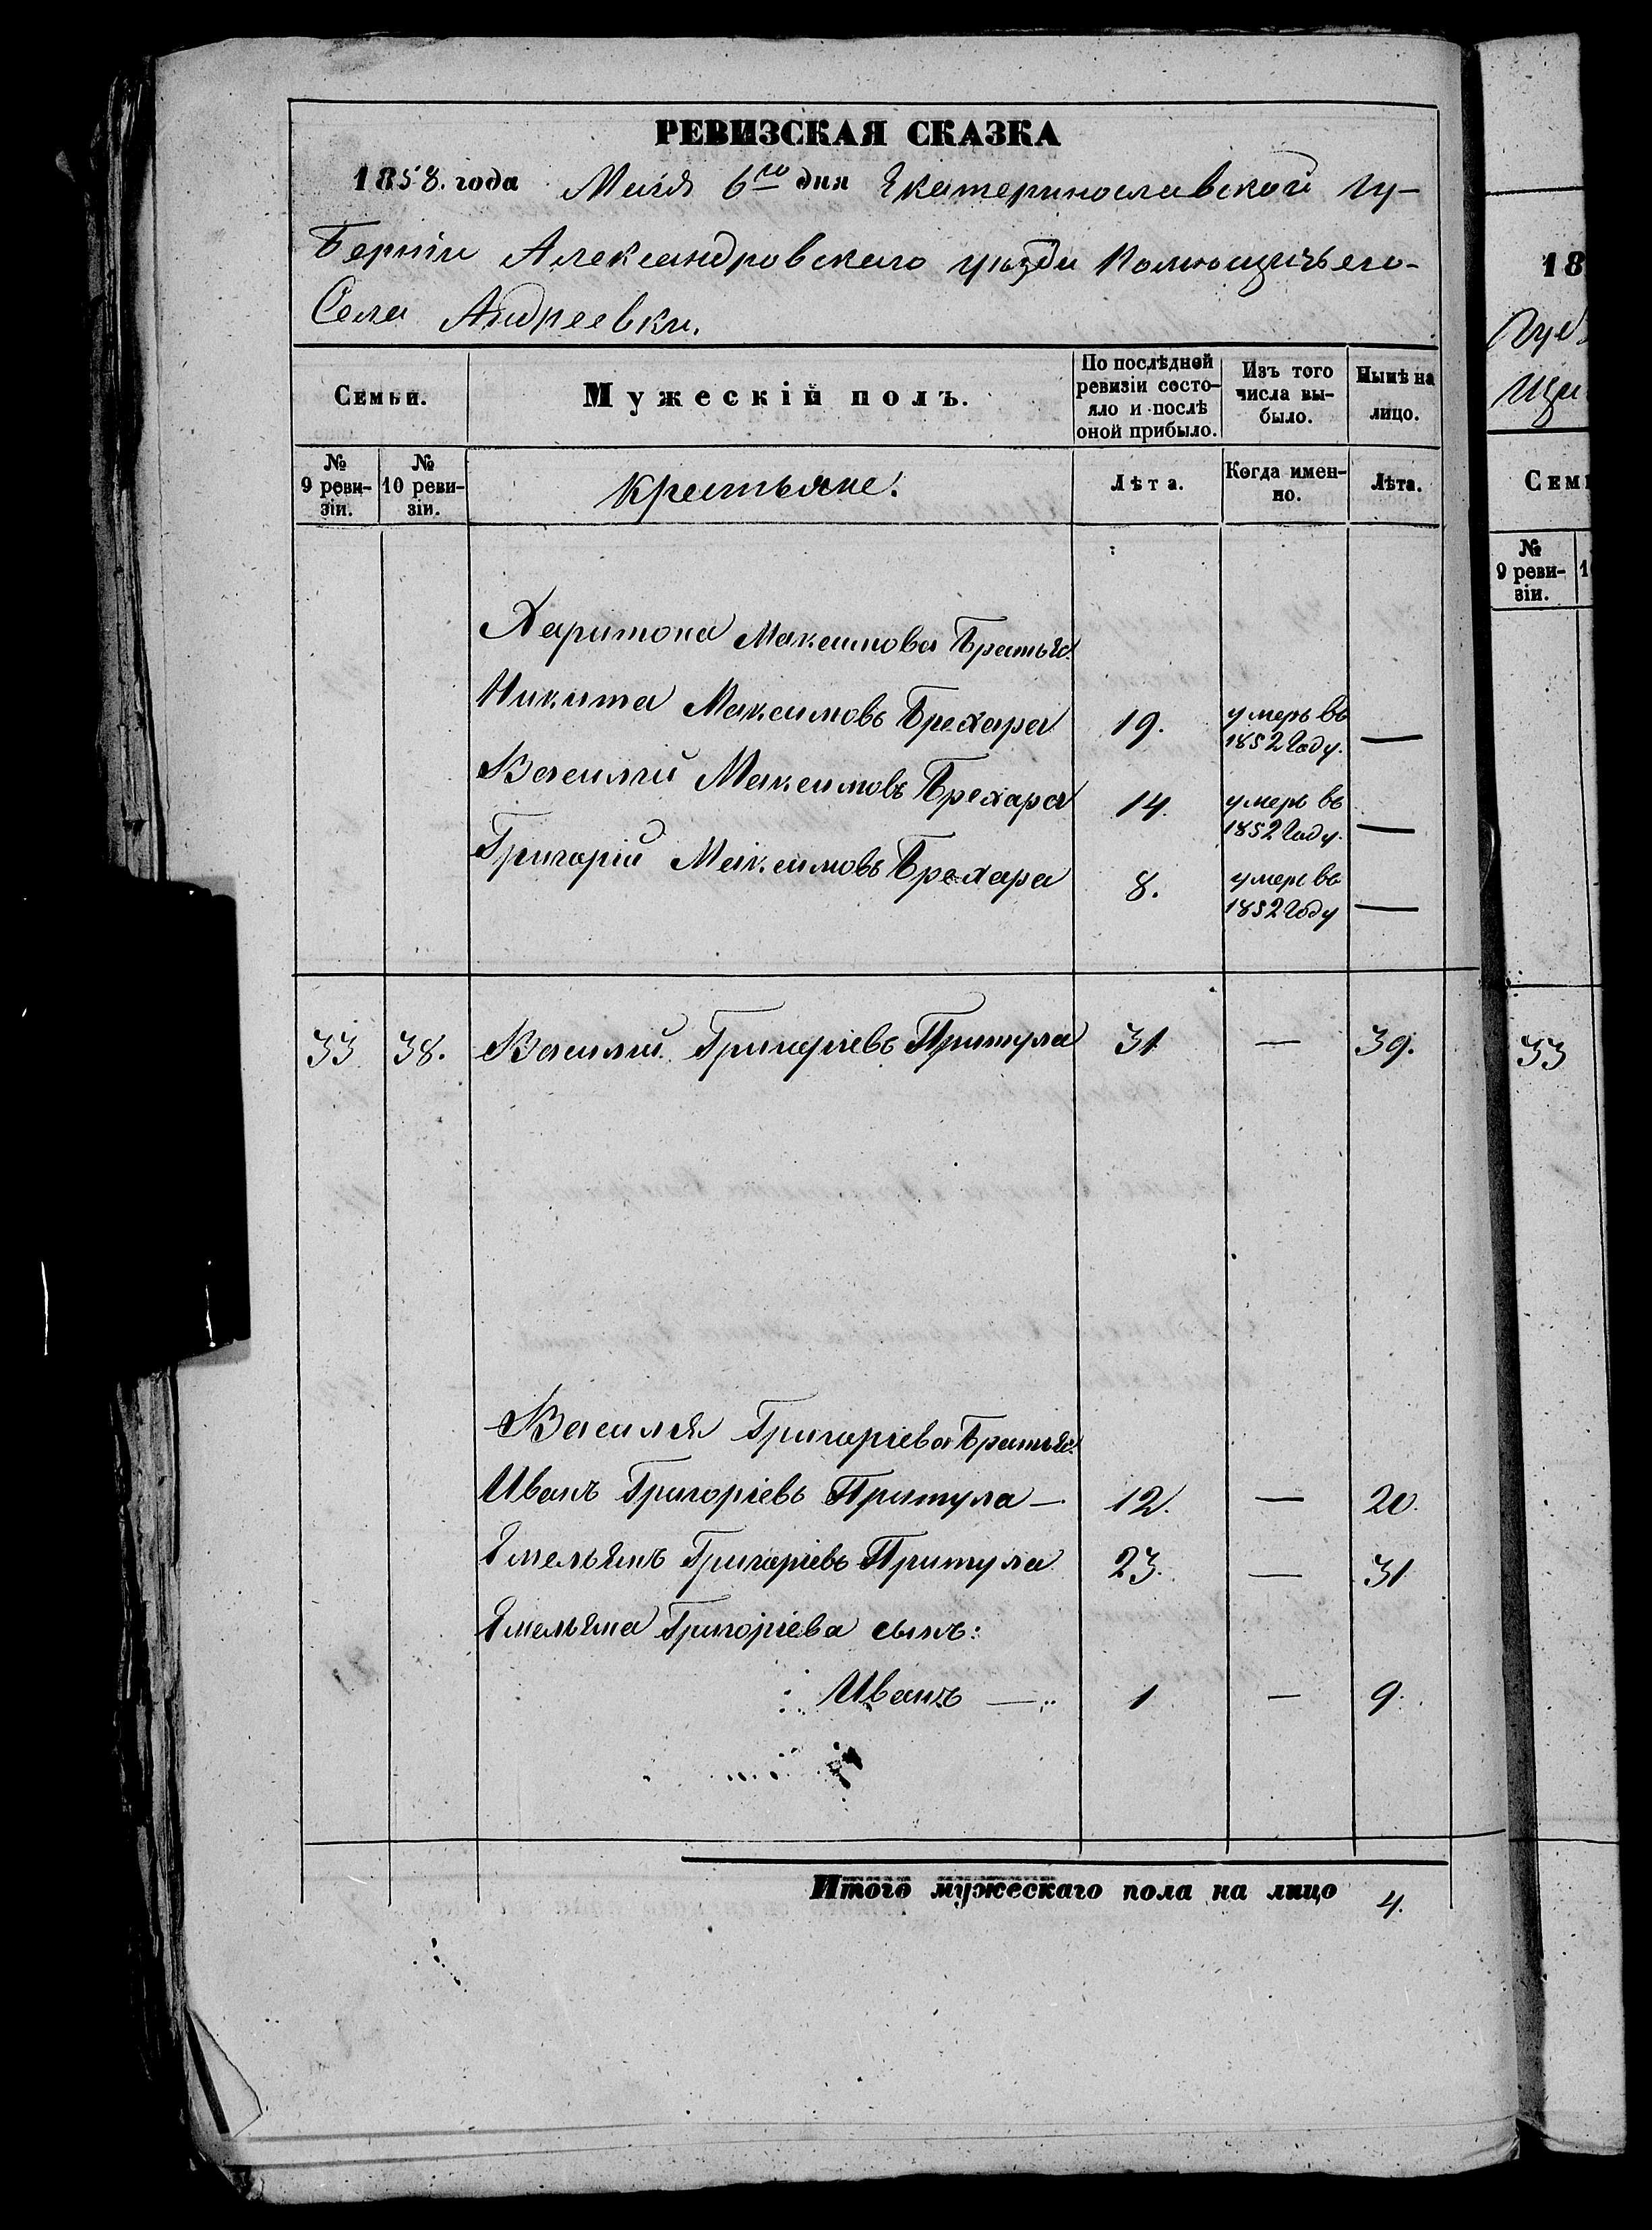 РЕВИЗСКАЯ СКАЗКА
1858. года Маія 6го дня Екатеринославской гу-
берніи Александровскаго уѣзда Помѣщичьяго
Села Андреевки.
Семьи. Мужескій полъ. По послѣдней ревизіи состо- Изъ того Нынѣ на
яло и послѣ числа вы-
оной прибыло. было. лицо.
№ № Крестьяне. Лѣта. Когда имен- Лѣта.
9 реви- 10 реви- но.
зіи. зіи.
Харитона Максимова братья:
Никита Максимовъ Брехара 19. умеръ въ
1852 году. —
Василій Максимовъ Брехара 14. умеръ въ
1852 году. —
Григорій Максимовъ Брехара 8. умеръ въ
1852 году —
33 38. Василій Григоріевъ Притула 31 — 39.
Василія Григоріева братья:
Иванъ Григоріевъ Притула — 12. — 20.
Емельянъ Григоріевъ Притула 23. — 31
Емельяна Григоріева сынъ:
Иванъ — 1 — 9.
Итого мужескаго пола на лицо 4.
18
Губ
Семь
№
9 реви- 1
зіи.
33